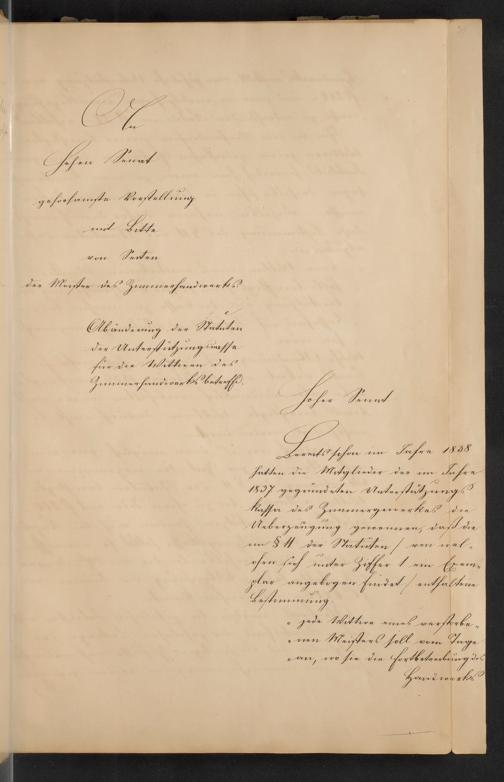 An
Hohen Senat
gehorsamste Vorstellung
mit Bitte
von Seiten
der Meister des Zimmerhandwerks
Abänderung der Statuten
der Unterstützungscassa
für die Wittwen des
Zimmerhandwerks betreffd.
Hoher Senat
Bereits schon im Jahre 1838
hatten die Mitglieder der im Jahre
1837 gegründeten Unterstützungs
Kassa des Zimmergewerkes die
Ueberzeugung gewonnen, daß die
im § 11 der Statuten / von wel-
chen sich unter Ziffer 1 ein Exem-
plar angebogen findet / enthaltene
Bestimmung.
„jede Wittwe eines verstorbe-
„nen Meisters soll vom Tage
„an, wo sie die Fortbetreibung des
Handwerks